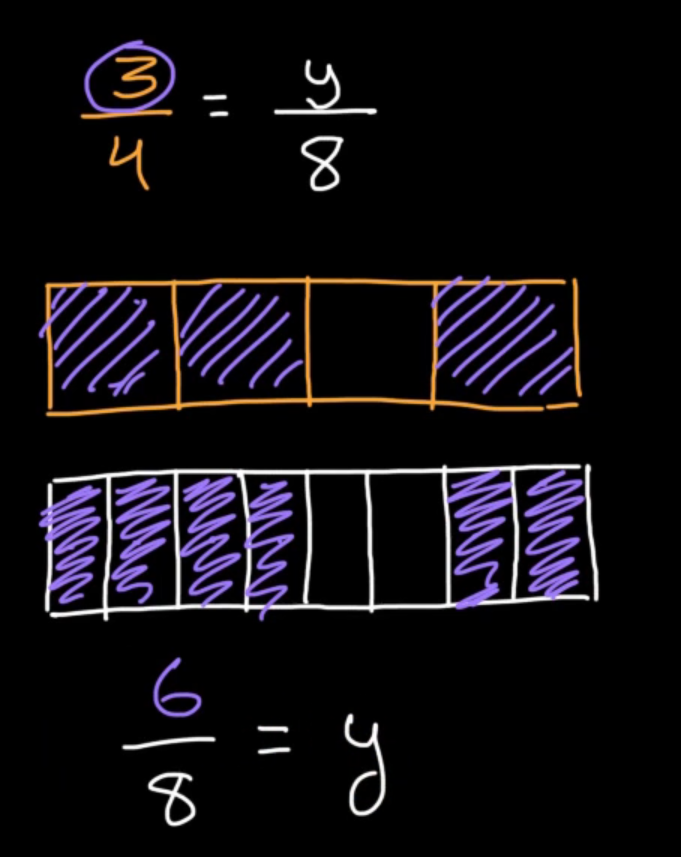 3/4 = y/8
6/8 = y